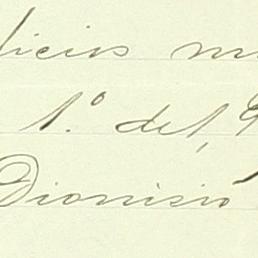 licios
1.º del,
Dionisio